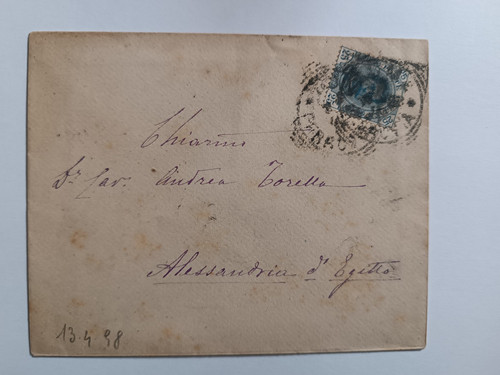 Chiarmo
Dr. Cav. Andrea Torella
" "
Alessandria d'Egitto
13.4 98